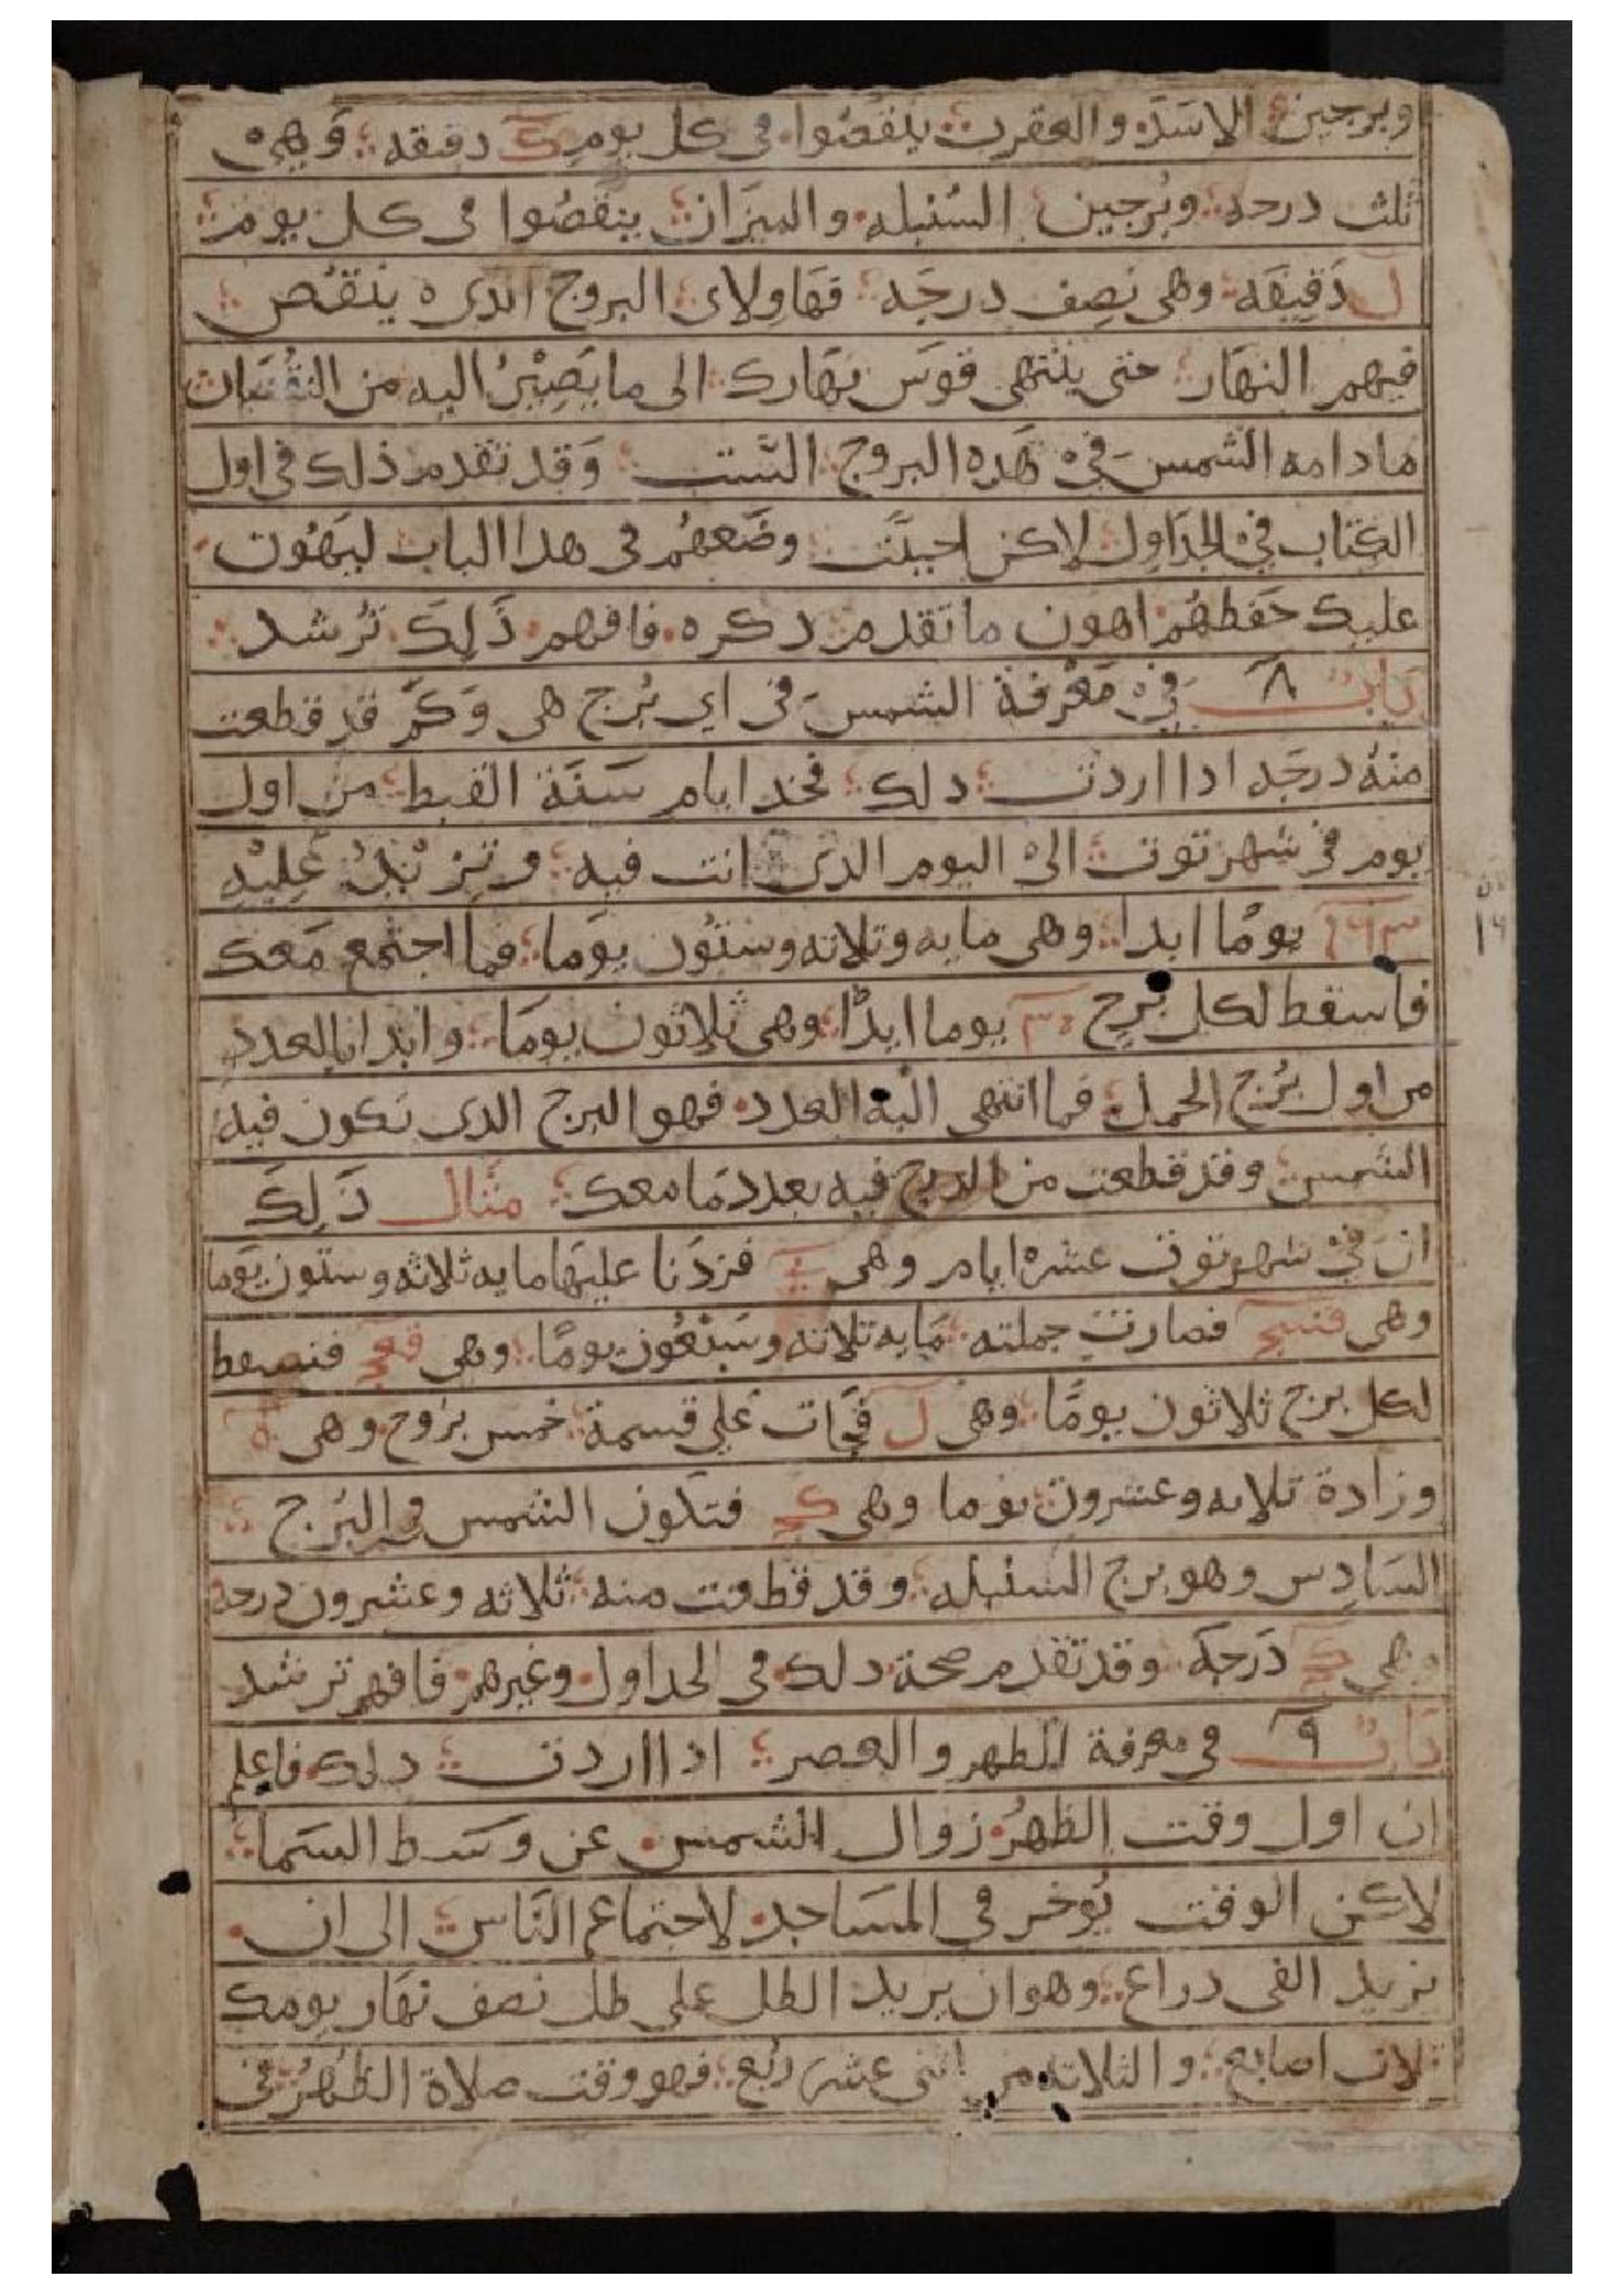 وبرجين الاسَد والعقرب ينقصُوا في كل يوم كَ دقيقه وَهي
ثلث درجه وبُرجين السُنبله والميزَان ينقصُوا في كل يوم
ل دَقيقَه وهي نَصِف درجَه فهَاولاى البروج الدي ينقُص
فيهم النهَار حتى ينتهي قوَس نهَارك الى ما يَصِيْرُ اليه من النقصَان
مادامه الشمس في هَده البروج السَّت وَقد تقدم ذلك في اول
الكتاب في الجدَاول لاكن احببَت وضَعهُم في هدا الباب ليَهُون
عليك حَفظهُم اهون ما تقدم دكره فافهم ذَلِكَ تُرشد
بَاب ٨ في مَعْرفة الشمس في اي بُرج هي وَكَم قد قطعت
منهُ درجَه ادا اردت دلك فخد ايام سَنَة القبط من اول
يوم في شهر توت الىْ اليوم الدَي انت فيه وتِزيْدُ عَليْهِ
١٦٣ يومًا ابدا وهي مايه وتلاته وستُون يوَما فما اجتمع مَعك
فاسقط لكل بُرج ٣٠ يوما ابدًا وهي ثلاثون يومَا وابدا بالعدد
من اول بُرج الحمل فما انتهى اليه العدد فهو البرج الدي تكون فيه
الشمس وقد قطعت من الدرج فيه بعدد مَا معك مثال ذَلِكَ
ان فيْ شهر توت عشرْه ايام وهي ي فزدَنا عليهَا مايه ثلاثه وستون يوَما
وهي قسج فصارت جملته مَايه تلاته وسَبْعُون يومًا وهي قعج فنسقط
لكل برج ثلاثون يومًا وهي ل فجَات عَلي قسمة خمس برُوج وهي ه
وزادة تلاته وعشرون يوما وهي كج فتكون الشمس في البُرج
السَادِس وهو برج السنبله وقد قطعت منه ثلاثه وعشرون درجة
وهي كج دَرجَة وقد تقدم صحة دلك في الجداول وغيرهم فافهم ترشد
بَاب ٩ في معرفة الظهر والعصر ادا اردت دلك فاعلم
ان اول وقت الظهرُ زوال الشمس عن وسَط السَما
لاكن الوقت يُوخر في المسَاجد لاجتماع النَاس الى ان
يزيد الفي دراع وهو ان يزيد الظل على ظل نصف نهَار يومك
تلات اصابع والثلاته من اثني عشر رُبع فهو وقت صلاة الظهُرُ في